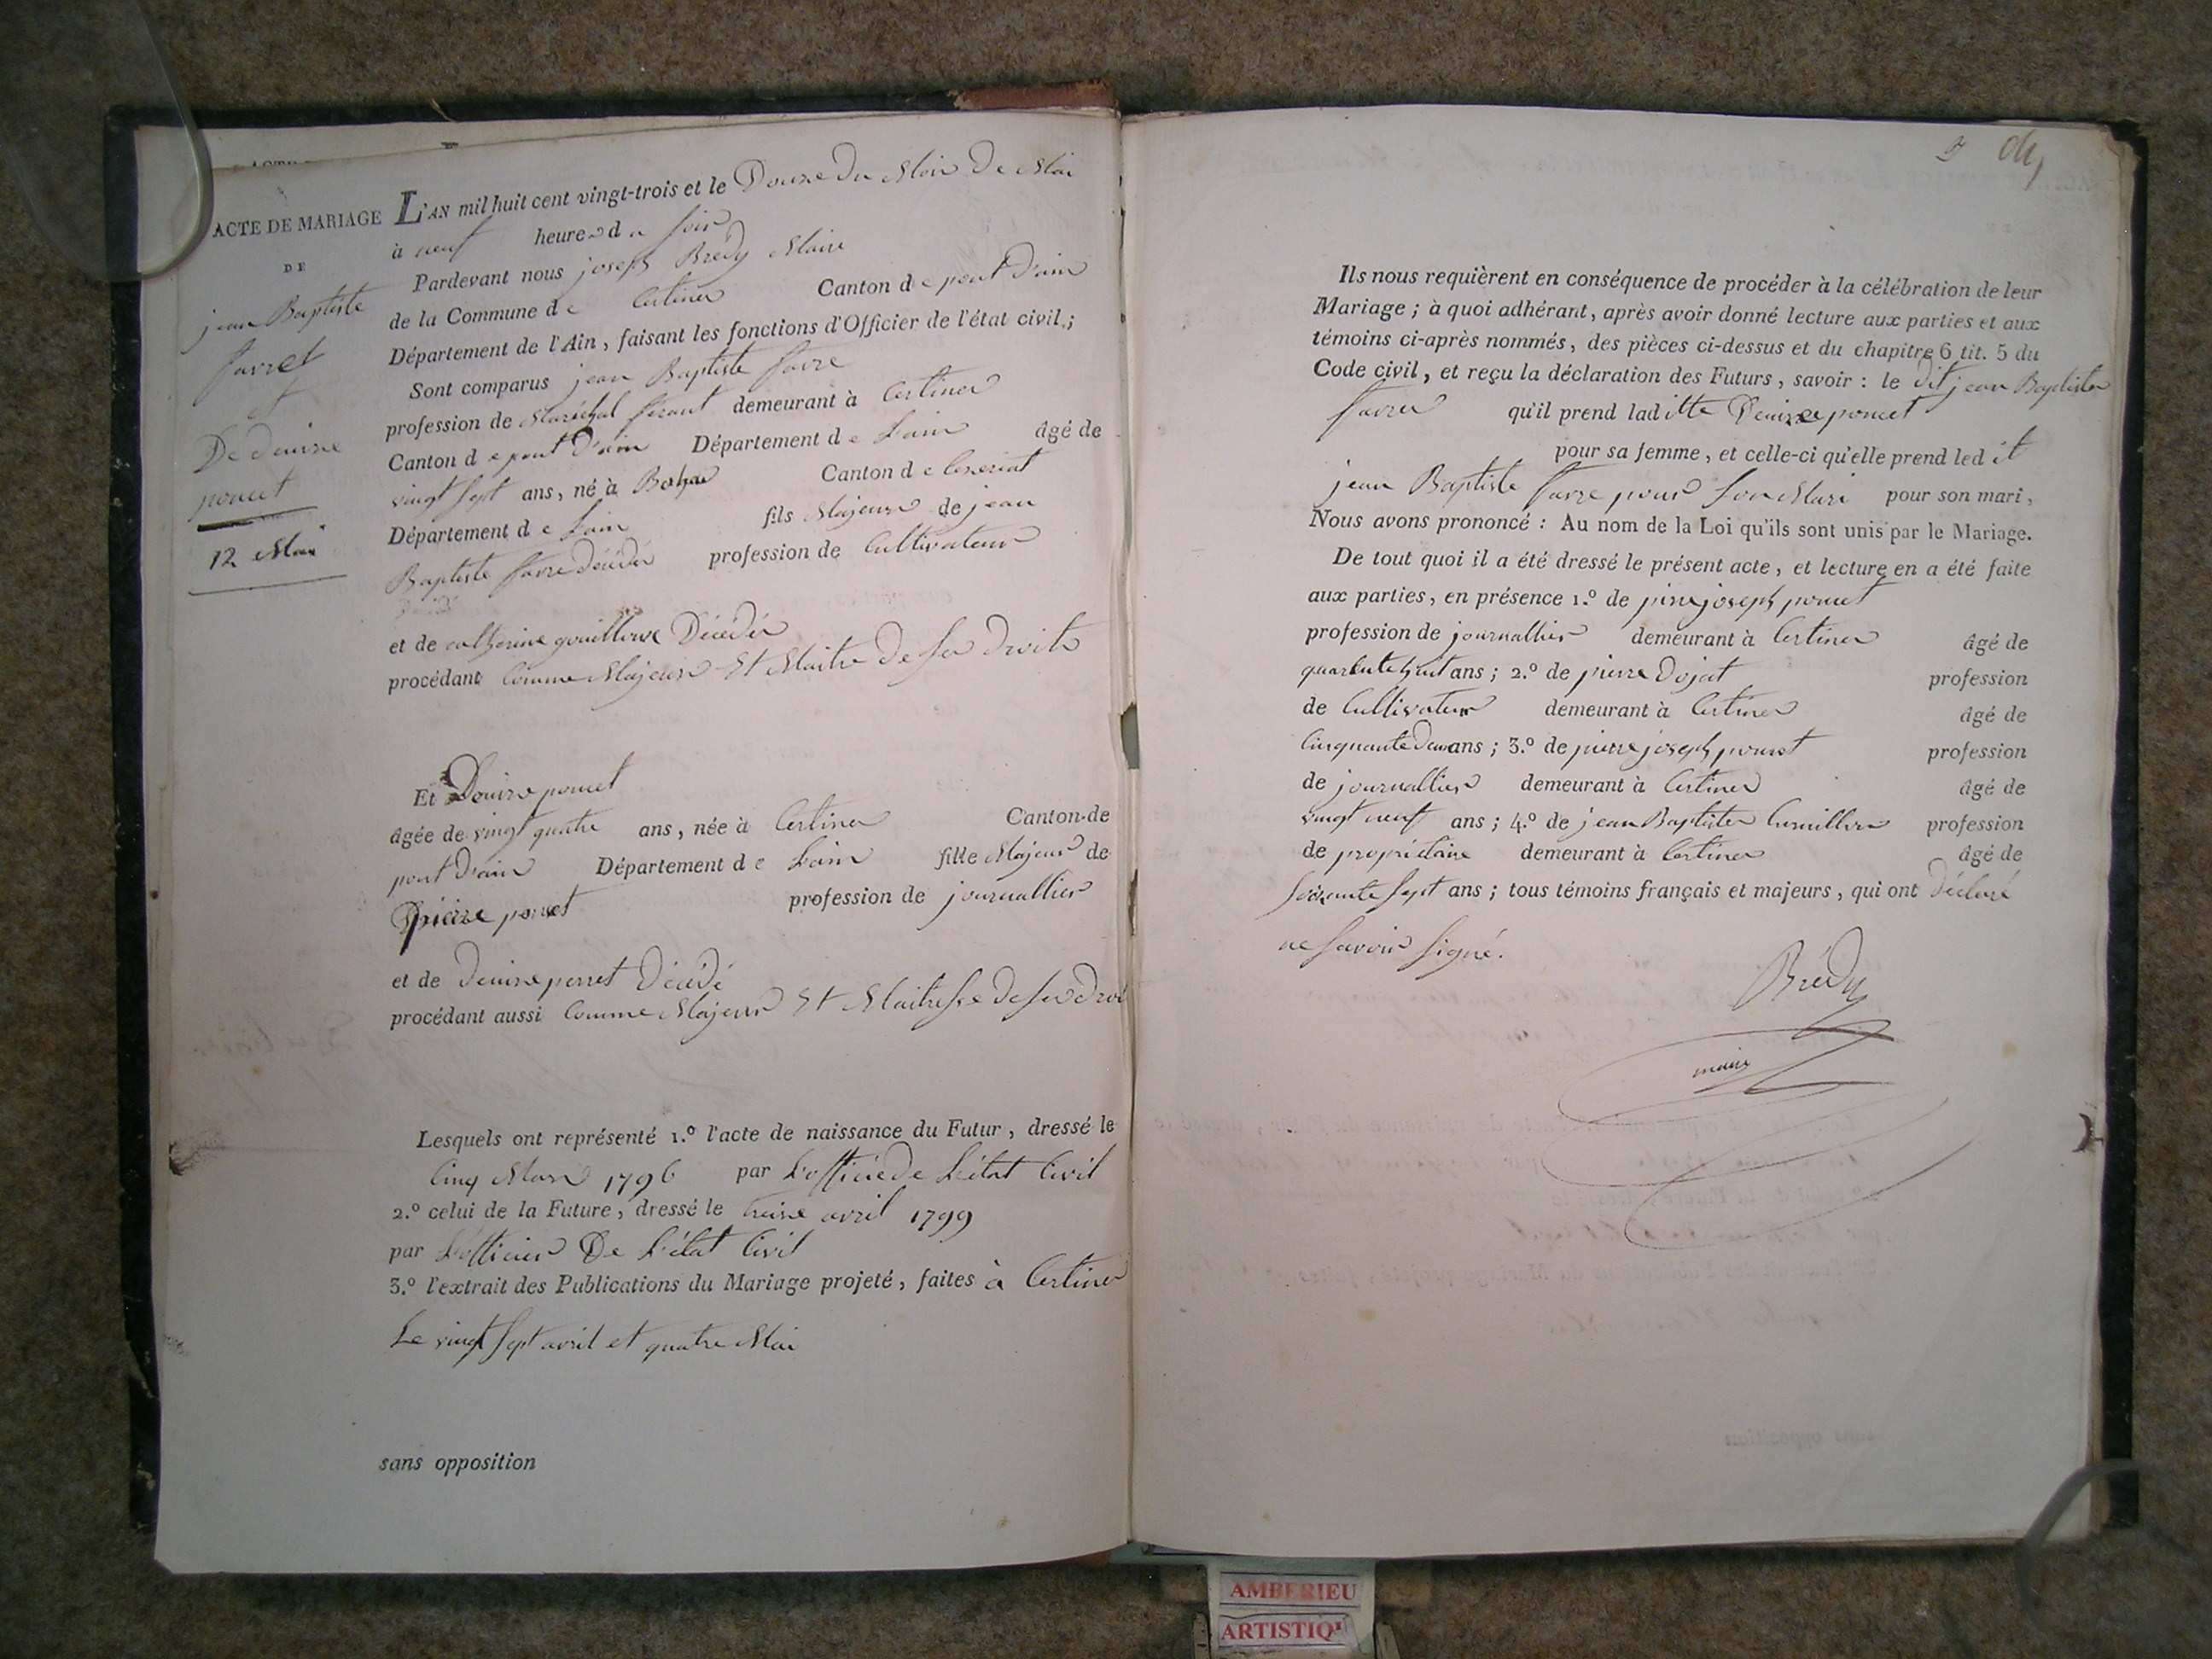 ACTE DE MARIAGE
DE
jean Baptiste
favret
et
De denise
poncet
12 Mai
L'AN mil huit cent vingt-trois et le Douze du Mois De Mai
à neuf heures du soir
Pardevant nous joseph Brédy Maire
de la Commune de Certines Canton de pont D'ain
Département de l'Ain, faisant les fonctions d'Officier de l'état civil;
Sont comparus jean Baptiste favre
profession de Maréchal férant demeurant à Certines
Canton de pont D'ain Département de Lain âgé de
vingt sept ans, né à Bohas Canton de Ceseriat
Département de Lain fils Majeur de jean
Baptiste favre décédé profession de Cultivateur
et de catherine gouilloux Décédée
procédant Comme Majeur Et Maitre De ses droits
Et Denise poncet
âgée de vingt quatre ans, née à Certines Canton de
pont D'ain Département de Lain fille Majeur de
pierre poncet profession de journallier
et de Denise perret Décédé
procédant aussi Comme Majeur Et Maitresse De ses Droi
Lesquels ont représenté 1.º l'acte de naissance du Futur, dressé le
Cinq Mars 1796 par L'officie de L'état Civil
2.º celui de la Future, dressé le treise avril 1799
par L'officier De L'état Civil
3.º l'extrait des Publications du Mariage projeté, faites à Certines
Le vingt sept avril et quatre Mai
sans opposition
Ils nous requièrent en conséquence de procéder à la célébration de leur
Mariage; à quoi adhérant, après avoir donné lecture aux parties et aux
témoins ci-après nommés, des pièces ci-dessus et du chapitre 6 tit. 5 du
Code civil, et reçu la déclaration des Futurs, savoir: le dit jean Baptiste
favre qu'il prend laditte Denise poncet
pour sa femme, et celle-ci qu'elle prend ledit
jean Baptiste favre pour son Mari pour son mari,
Nous avons prononcé: Au nom de la Loi qu'ils sont unis par le Mariage.
De tout quoi il a été dressé le présent acte, et lecture en a été faite
aux parties, en présence 1.º de pierre joseph poncet
profession de journallier demeurant à Certines âgé de
quarante huit ans; 2.º de pierre Dojat profession
de Cultivateur demeurant à Certines âgé de
Cinquante deux ans; 3.º de pierre joseph poncet profession
de journallier demeurant à Certines âgé de
vingt neuf ans; 4.º de jean Baptiste profession
de propriétaire demeurant à Certines âgé de
Soixante sept ans; tous témoins français et majeurs, qui ont déclaré
ne savoir signé.
Brédy
maire
sans opposition
AMBERIEU
ARTISTIQ